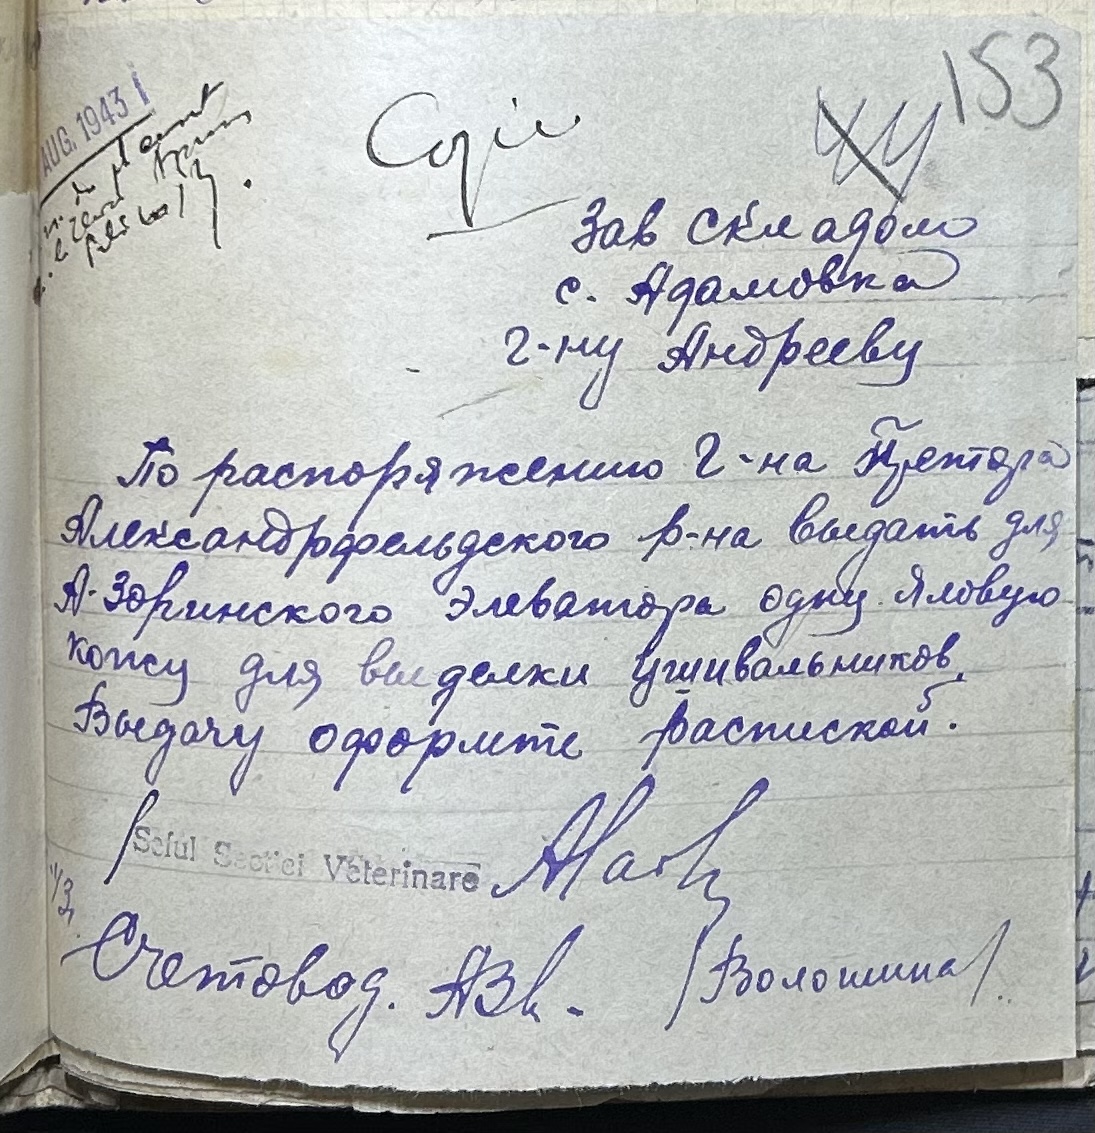 153
AUG. 1943
Copie
Зав складом
с. Адамовка
г-ну Андрееву
По распоряжению г-на Претора
Александрфельдского р-на выдать для
А-Зоринского элеватора одну яловую
кожу для выделки ушивальников.
Выдачу оформте распиской.
Seful Sectiei Veterinare
Счетовод. АВв. /Волошина/.